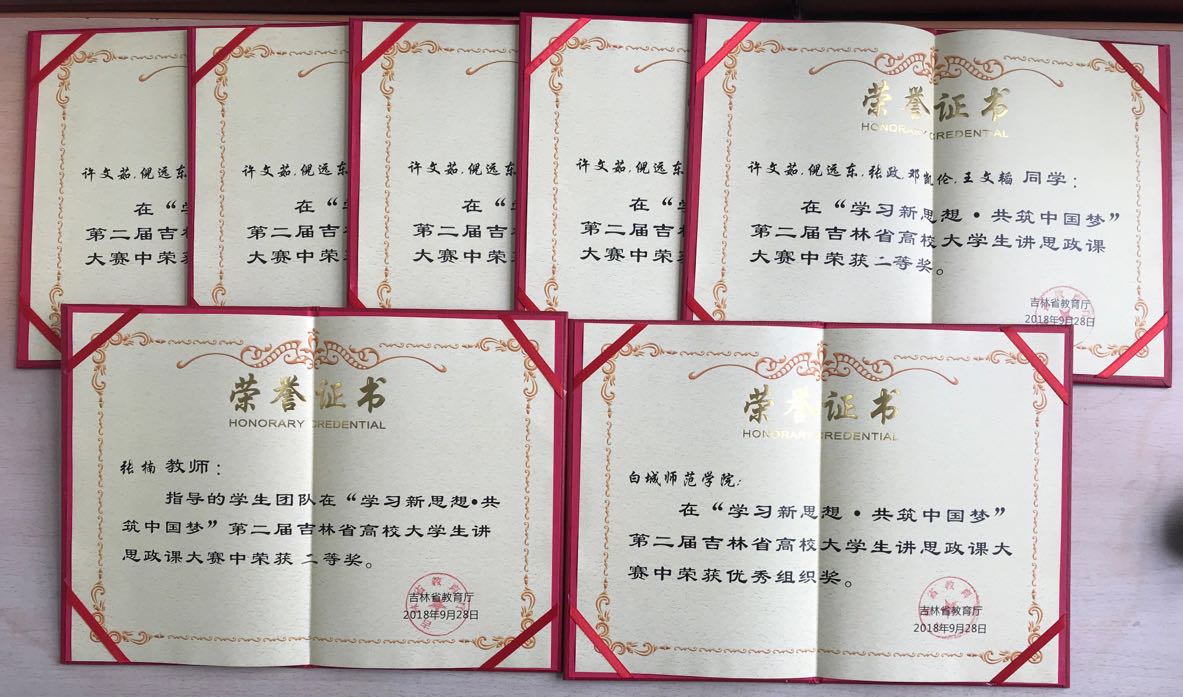 许文茹,倪远东
在“学
第二届吉林
大赛中荣获
许文茹,倪远东
在“学
第二届吉林
大赛中荣获
许文茹,倪远东
在“学
第二届吉林
大赛中荣获
许文茹,倪远东
在“学
第二届吉林
大赛中荣获
荣誉证书
HONORARY CREDENTIAL
许文茹,倪远东,张政,邓凯伦,王文韬 同学:
在“学习新思想·共筑中国梦”
第二届吉林省高校大学生讲思政课
大赛中荣获二等奖。
吉林省教育厅
2018年9月28日
荣誉证书
HONORARY CREDENTIAL
张楠 教师:
指导的学生团队在“学习新思想·共
筑中国梦”第二届吉林省高校大学生讲
思政课大赛中荣获 二等奖。
吉林省教育厅
2018年9月28日
荣誉证书
HONORARY CREDENTIAL
白城师范学院:
在“学习新思想·共筑中国梦”
第二届吉林省高校大学生讲思政课大
赛中荣获优秀组织奖。
吉林省教育厅
2018年9月28日